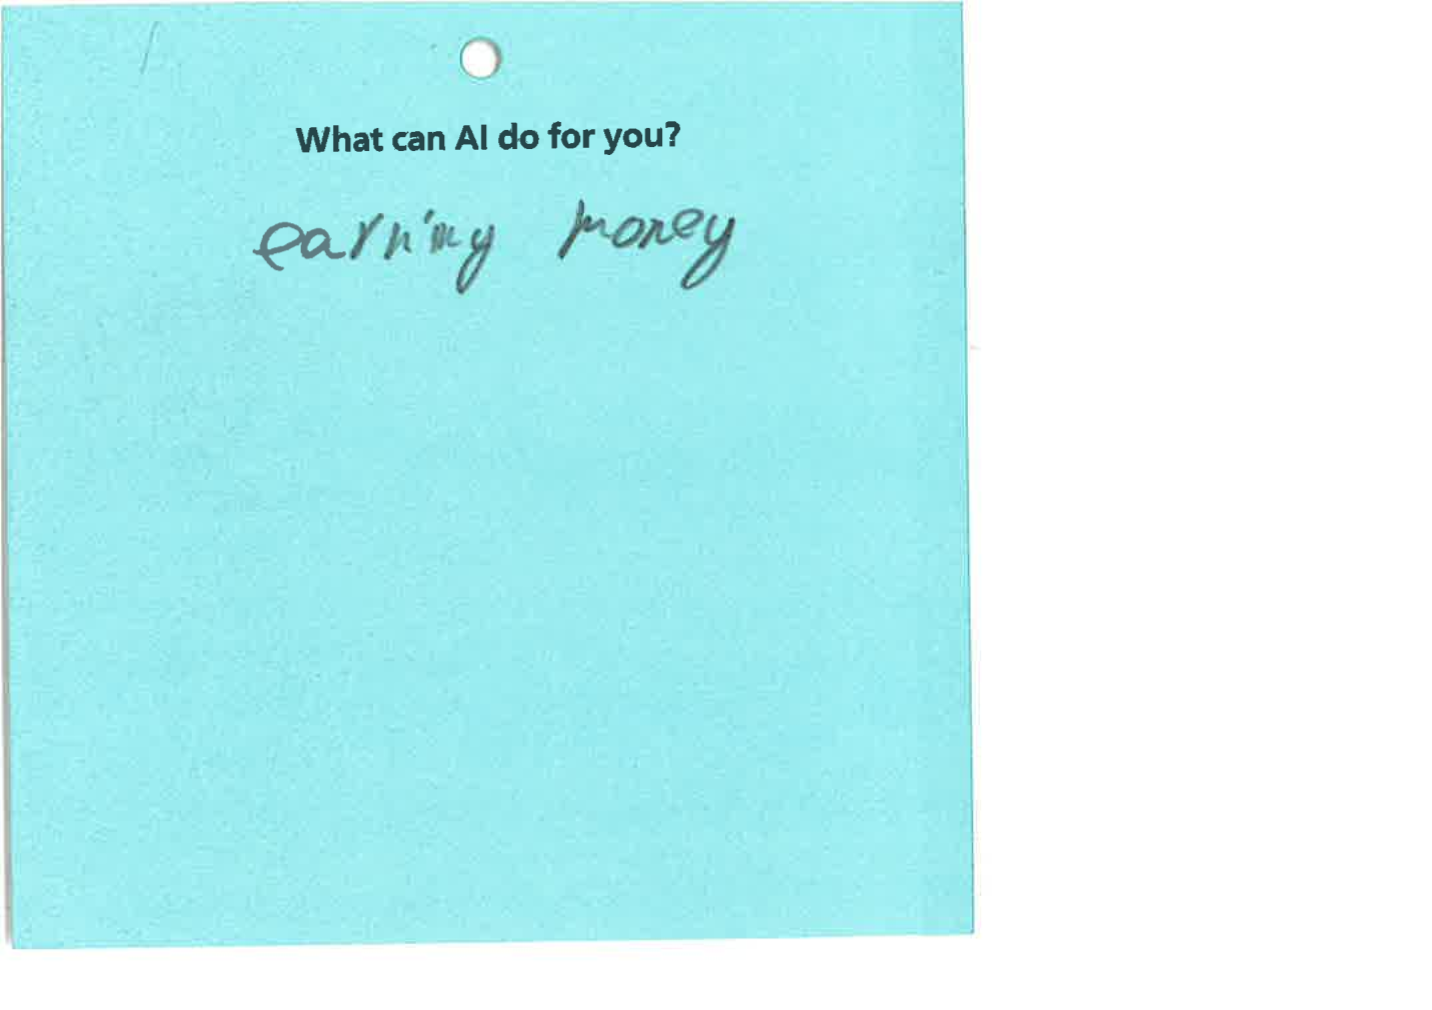 What can AI do for you?
earning money